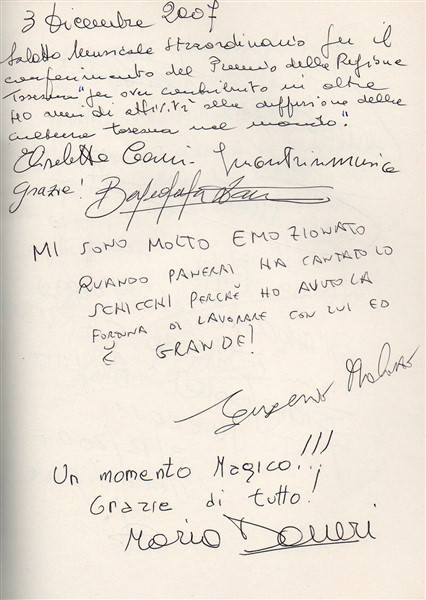 3 Dicembre 2007
Salotto Musicale Straordinario per il
conferimento del Premio della Regione
Toscana "per aver contribuito in oltre
40 anni di attività alla diffusione della
cultura toscana nel mondo".
Elisabetta
grazie!
MI SONO MOLTO EMOZIONATO
QUANDO PANERAI HA CANTATO LO
SCHICCHI PERCHÈ HO AVUTO LA
FORTUNA DI LAVORARE CON LUI ED
È GRANDE!
Un momento Magico...!!!
Grazie di tutto!
Mario